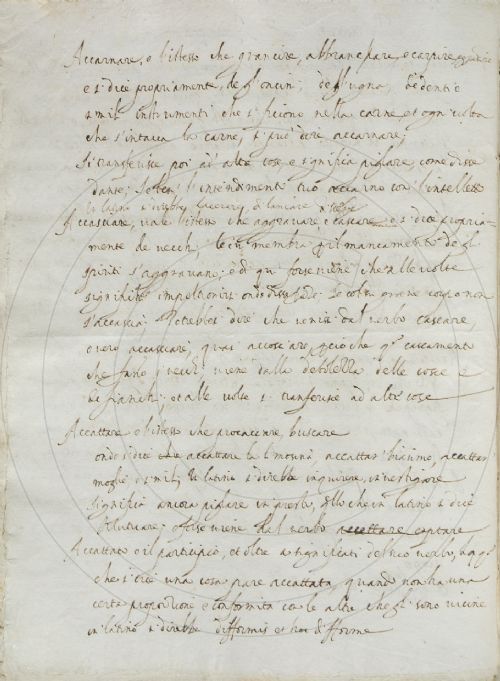 Accarnare, è l'istesso che grancire, abbrancpare, e carpire
e si dice propriamente, degl'oncini, dell'ugna, de denti e
simili instrumenti che si ficcono nella carne, et ogni volta
che s'intacca la carne, si può dire accarnare;
Si transferisce poi ad altre cose e significa pigliare, come disse
Dante; Se ben l'intendimento tuo accarno con l'intelletto
In latino si direbbe lacerare,
Accasciare, vale l'istesso che aggravare, e cascare e si dice propria-
mente de vecchi, le cui membra p il mancamento degl
spiriti s'aggravano; e di qui forse viene che alle volte
significhi impoltronirsi onde disse
s'accascia. Potrebbesi dire che venisse dal verbo cascare,
overo accasciare, quasi accosciare, p ciò che q.o cascamento
che fano i vecchi viene dalla debolezza delle coscie e
de fianchi; et alle volte si transferisce ad altre cose
Accattare è l'istesso che procacciare, buscare
onde si dice che accattare la limosina accattar biasimo, accattar
moglie e simili, In latino si direbbe inquirere, investigare
Significa ancora pigliare in presto, q.llo che in latino si dice
Mutuare; forse viene dal verbo accettare captare
Accattato è il participio, et oltre a significati del suo verbo,
che si dice una cosa pare accattata, quando non ha una
certa proporzione e conformita con le altre che gli sono vicine
in latino si direbbe difformis et hoc difforme